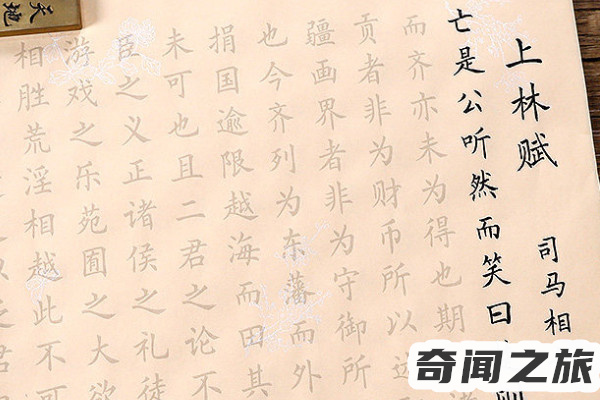 上林赋
司马相
亡是公听然而笑曰
而齐亦未为得也期
贡者非为财币所以述
疆画界者非为守御所
也今齐列为东藩而外
捐国逾限越海而田其
未可也且二君之论不
臣之义正诸侯之礼徒
游戏之乐苑囿之大欲
相胜荒淫相越此不可
天地
奇闻之旅